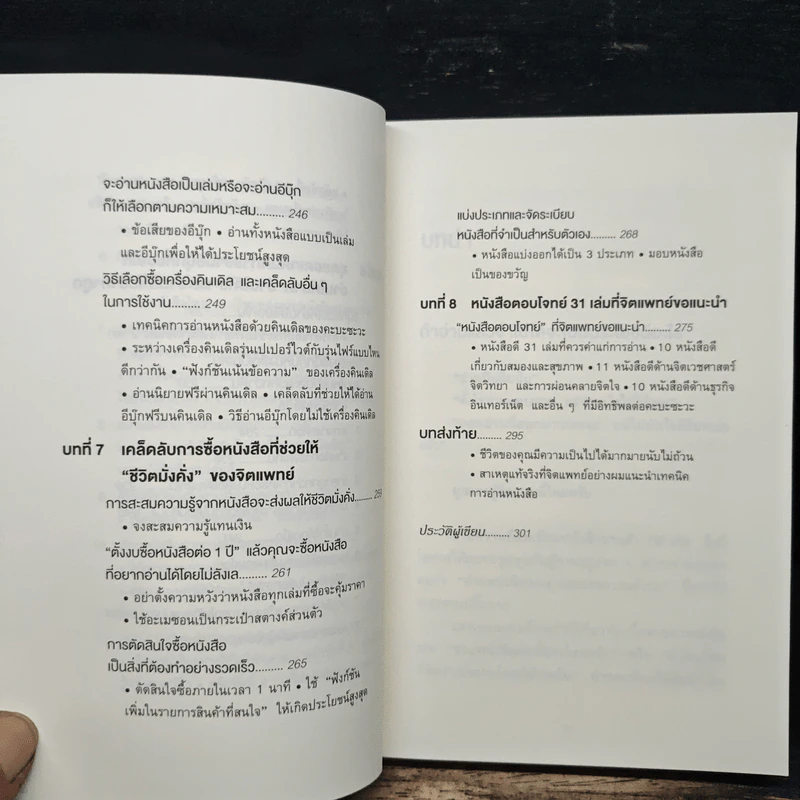 จะอ่านหนังสือเป็นเล่มหรือจะอ่านอีบุ๊ก
ก็ให้เลือกตามความเหมาะสม......... 246
• ข้อเสียของอีบุ๊ก • อ่านทั้งหนังสือแบบเป็นเล่ม
และอีบุ๊กเพื่อให้ได้ประโยชน์สูงสุด
วิธีเลือกซื้อเครื่องคินเดิล และเคล็ดลับอื่น ๆ
ในการใช้งาน......... 249
• เทคนิคการอ่านหนังสือด้วยคินเดิลของคะบะซะวะ
• ระหว่างเครื่องคินเดิลรุ่นเปเปอร์ไวต์กับรุ่นไฟร์แบบไหน
ดีกว่ากัน • “ฟังก์ชันเน้นข้อความ” ของเครื่องคินเดิล
• อ่านนิยายฟรีผ่านคินเดิล • เคล็ดลับที่ช่วยให้ได้อ่าน
อีบุ๊กฟรีบนคินเดิล • วิธีอ่านอีบุ๊กโดยไม่ใช้เครื่องคินเดิล
บทที่ 7 เคล็ดลับการซื้อหนังสือที่ช่วยให้
“ชีวิตมั่งคั่ง” ของจิตแพทย์
การสะสมความรู้จากหนังสือจะส่งผลให้ชีวิตมั่งคั่ง......... 259
• จงสะสมความรู้แทนเงิน
“ตั้งงบซื้อหนังสือต่อ 1 ปี” แล้วคุณจะซื้อหนังสือ
ที่อยากอ่านได้โดยไม่ลังเล......... 261
• อย่าตั้งความหวังว่าหนังสือทุกเล่มที่ซื้อจะคุ้มราคา
• ใช้อะเมซอนเป็นกระเป๋าสตางค์ส่วนตัว
การตัดสินใจซื้อหนังสือ
เป็นสิ่งที่ต้องทำอย่างรวดเร็ว......... 265
• ตัดสินใจซื้อภายในเวลา 1 นาที • ใช้ “ฟังก์ชัน
เพิ่มในรายการสินค้าที่สนใจ” ให้เกิดประโยชน์สูงสุด
แบ่งประเภทและจัดระเบียบ
หนังสือที่จำเป็นสำหรับตัวเอง......... 268
• หนังสือแบ่งออกได้เป็น 3 ประเภท • มอบหนังสือ
เป็นของขวัญ
บทที่ 8 หนังสือตอบโจทย์ 31 เล่มที่จิตแพทย์ขอแนะนำ
“หนังสือตอบโจทย์” ที่จิตแพทย์ขอแนะนำ......... 275
• หนังสือดี 31 เล่มที่ควรค่าแก่การอ่าน • 10 หนังสือดี
เกี่ยวกับสมองและสุขภาพ • 11 หนังสือดีด้านจิตเวชศาสตร์
จิตวิทยา และการผ่อนคลายจิตใจ • 10 หนังสือดีด้านธุรกิจ
อินเทอร์เน็ต และอื่น ๆ ที่มีอิทธิพลต่อคะบะซะวะ
บทส่งท้าย......... 295
• ชีวิตของคุณมีความเป็นไปได้มากมายนับไม่ถ้วน
• สาเหตุแท้จริงที่จิตแพทย์อย่างผมแนะนำเทคนิค
การอ่านหนังสือ
ประวัติผู้เขียน......... 301